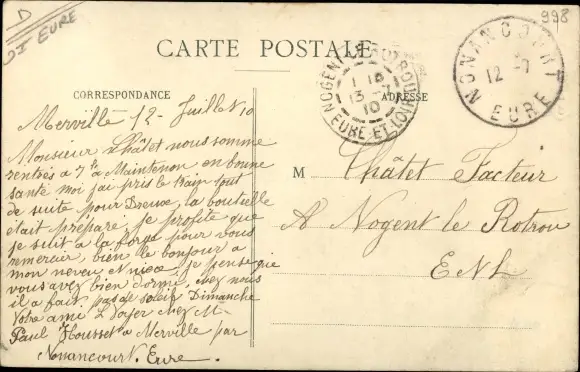 D
DI EURE
998
CARTE POSTALE
CORRESPONDANCE
ADRESSE
NOGENT-LE-ROTROU
13 -7
10
EURE-ET-LOIR
NONANCOURT
12 -7
EURE
Merville 12 - Juillet 10
Monsieur Châtet nous somme
rentrés a 7 h a Maintenon en bonne
santé moi j'ai pris le train tout
de suite pour Dreux, la bouteille
était préparé, je profite que
je suit a la forge pour vous
remercier, bien le bonjour a
mon neveu et nièce, je pense que
vous avez bien dormi, chez nous
il a fait pas de soleil Dimanche
Votre ami L Dajer chez M.
Paul Housset a Merville par
Nonancourt. Eure.
M Châtet Facteur
A Nogent le Rotrou
E N L